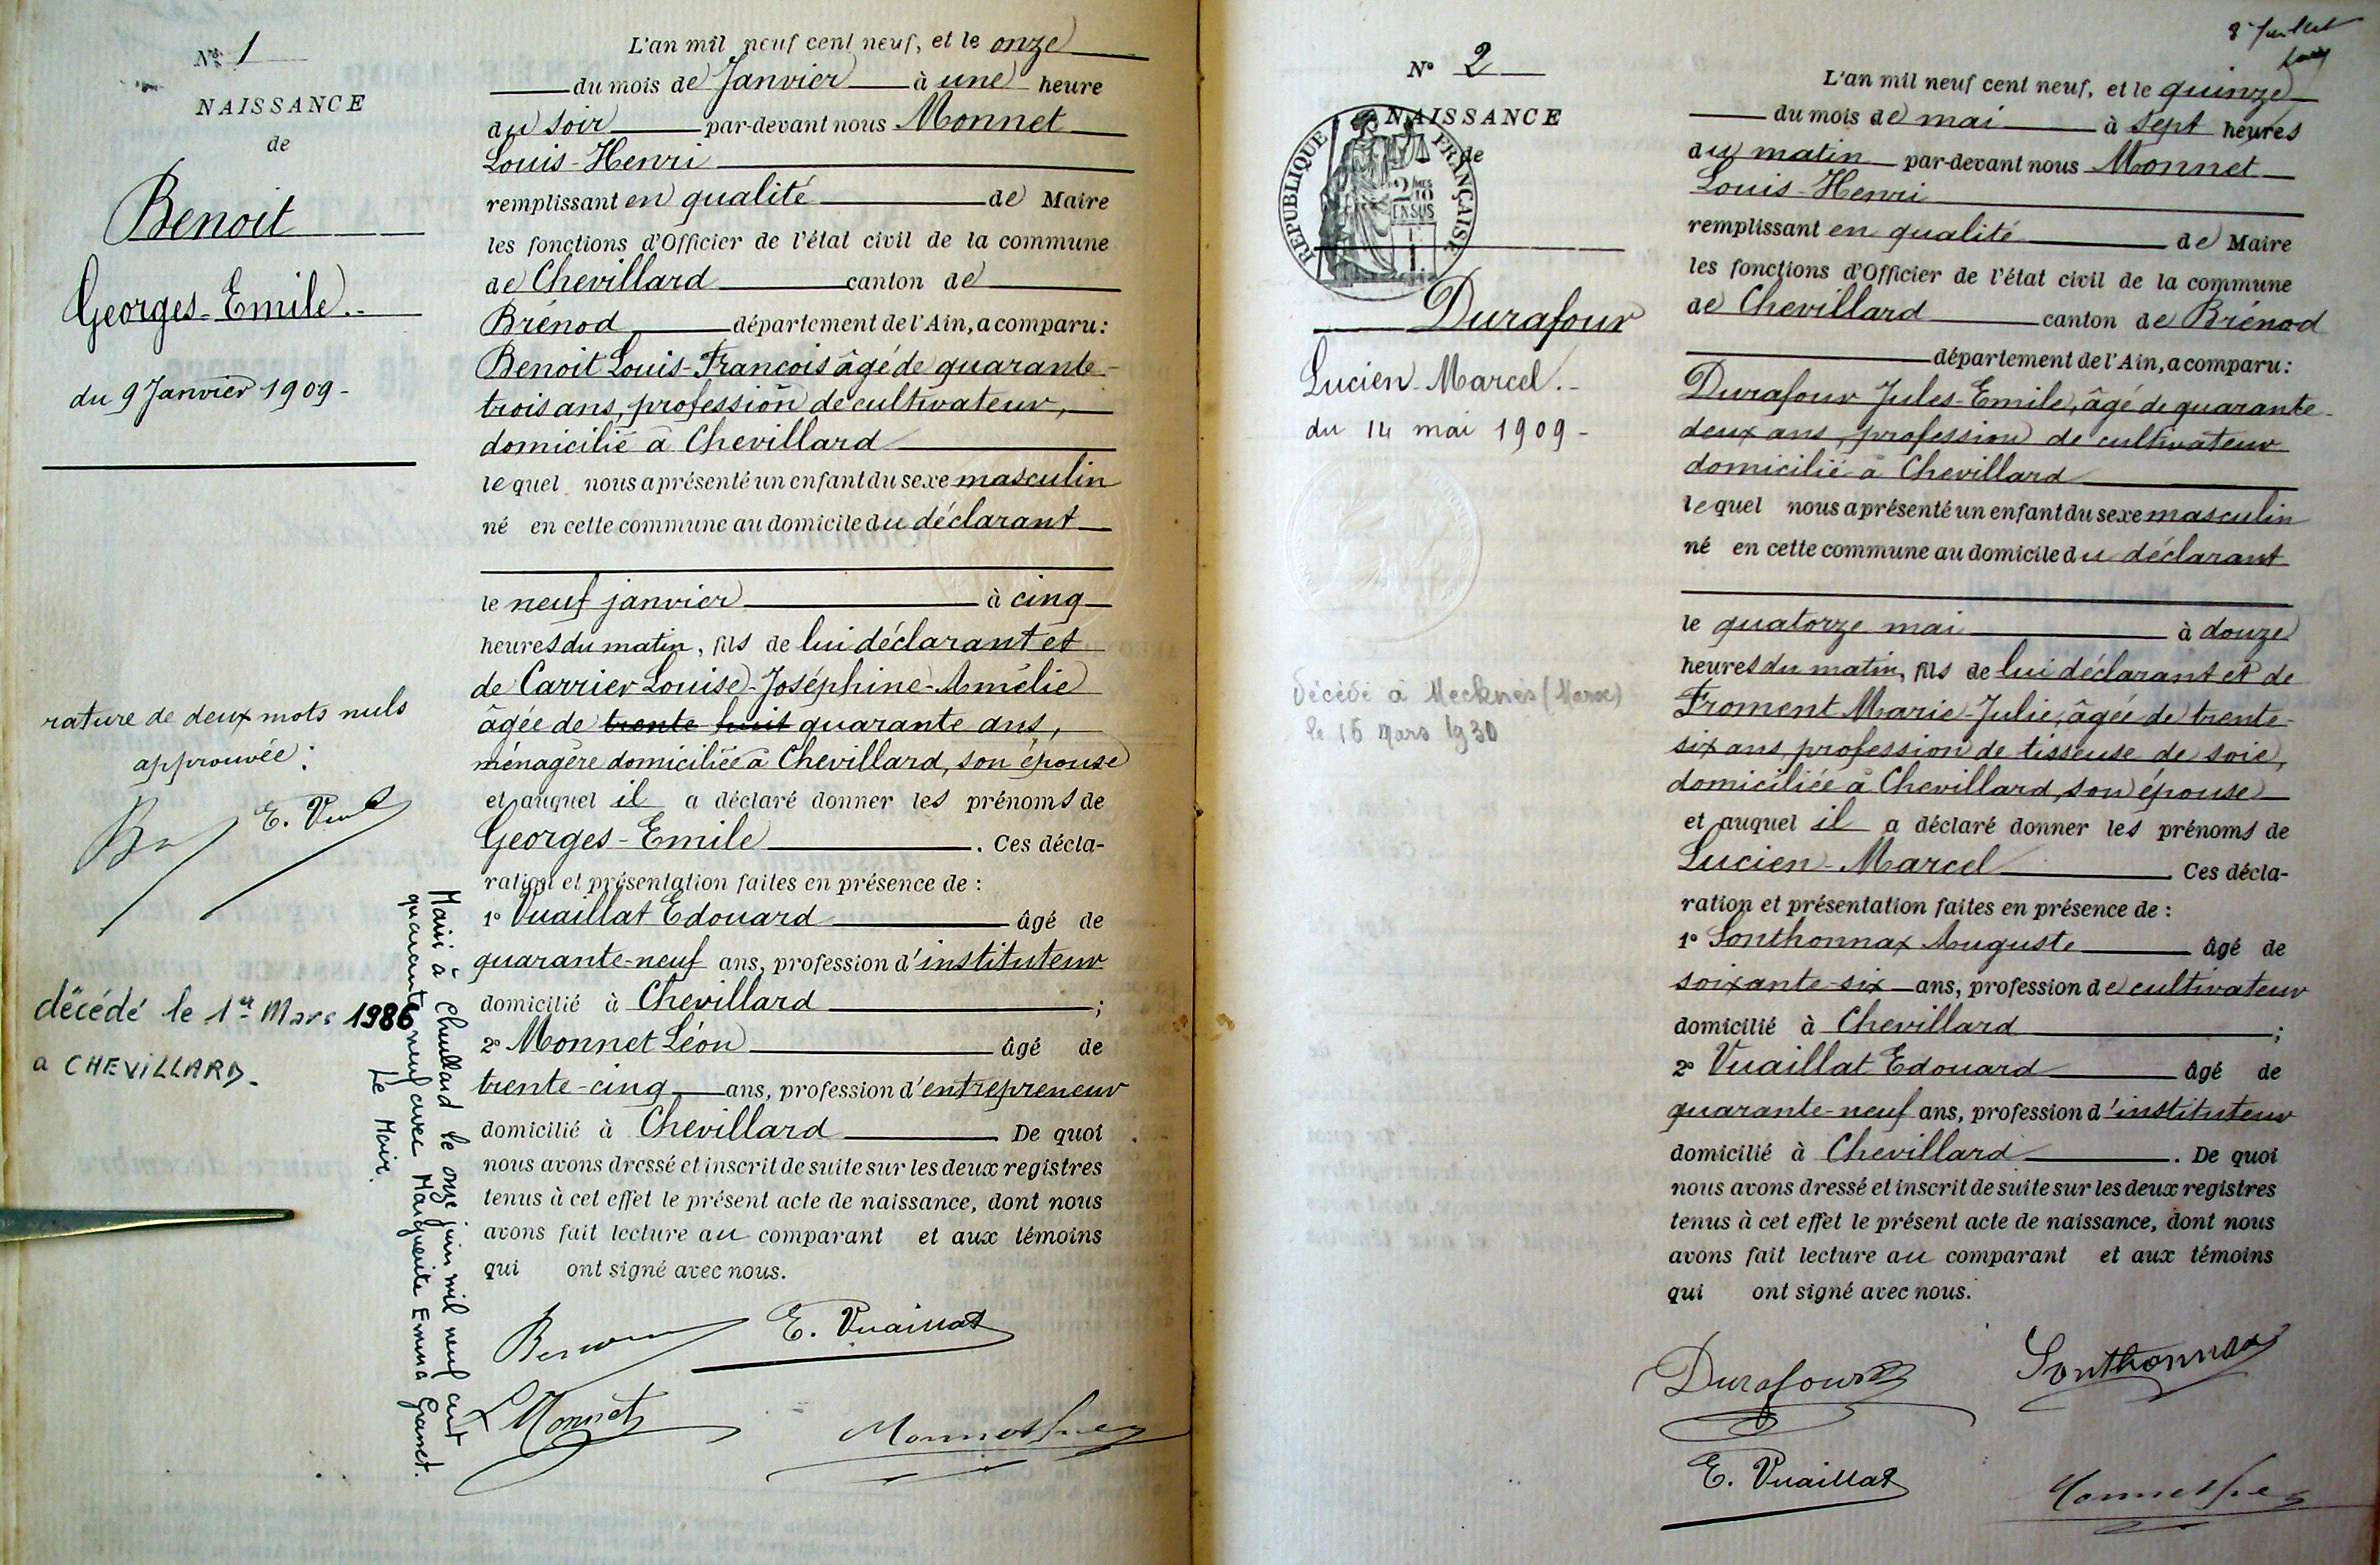 N° 1
NAISSANCE
de
Benoit
Georges-Emile.-
du 9 Janvier 1909-
rature de deux mots nuls
approuvée:
décédé le 1er Mars 1986
a CHEVILLARD.
Marié à Chevillard le onze juin mil neuf cent
quarante neuf avec Marguerite Emma
Le Maire.
L'an mil neuf cent neuf, et le onze
du mois de Janvier à une heure
du soir par-devant nous Monnet
Louis-Henri
remplissant en qualité de Maire
les fonctions d'Officier de l'état civil de la commune
de Chevillard canton de
Brénod département de l'Ain, a comparu:
Benoit Louis-François âgé de quarante-
trois ans, profession de cultivateur,
domicilié à Chevillard
lequel nous a présenté un enfant du sexe masculin
né en cette commune au domicile du déclarant
le neuf janvier à cinq
heures du matin, fils de lui déclarant et
de Carrier Louise-Joséphine-Amélie
âgée de trente huit quarante ans,
ménagère domiciliée à Chevillard, son épouse
et auquel il a déclaré donner les prénoms de
Georges-Emile. Ces décla-
ration et présentation faites en présence de :
1° Vuaillat Edouard âgé de
quarante-neuf ans, profession d'instituteur
domicilié à Chevillard ;
2° Monnet Léon âgé de
trente-cinq ans, profession d'entrepreneur
domicilié à Chevillard De quoi
nous avons dressé et inscrit de suite sur les deux registres
tenus à cet effet le présent acte de naissance, dont nous
avons fait lecture au comparant et aux témoins
qui ont signé avec nous.
E. Vuaillat
L Monnet
N° 2
NAISSANCE
de
RÉPUBLIQUE FRANÇAISE
Durafour
Lucien-Marcel.-
du 14 mai 1909-
Décédé à Mecknès (Maroc)
le 15 Mars 1930
8 Juillet
L'an mil neuf cent neuf, et le quinze
du mois de mai à sept heures
du matin par-devant nous Monnet
Louis-Henri
remplissant en qualité de Maire
les fonctions d'Officier de l'état civil de la commune
de Chevillard canton de Brénod
département de l'Ain, a comparu:
Durafour Jules-Emile, âgé de quarante-
deux ans, profession de cultivateur
domicilié à Chevillard
lequel nous a présenté un enfant du sexe masculin
né en cette commune au domicile du déclarant
le quatorze mai à douze
heures du matin, fils de lui déclarant et de
Froment Marie-Julie, âgée de trente-
six ans, profession de tisseuse de soie,
domiciliée à Chevillard, son épouse
et auquel il a déclaré donner les prénoms de
Lucien-Marcel Ces décla-
ration et présentation faites en présence de :
1° Sonthonnax Auguste âgé de
soixante-six ans, profession de cultivateur
domicilié à Chevillard ;
2° Vuaillat Edouard âgé de
quarante-neuf ans, profession d'instituteur
domicilié à Chevillard. De quoi
nous avons dressé et inscrit de suite sur les deux registres
tenus à cet effet le présent acte de naissance, dont nous
avons fait lecture au comparant et aux témoins
qui ont signé avec nous.
Durafour
Sonthonnax
E. Vuaillat